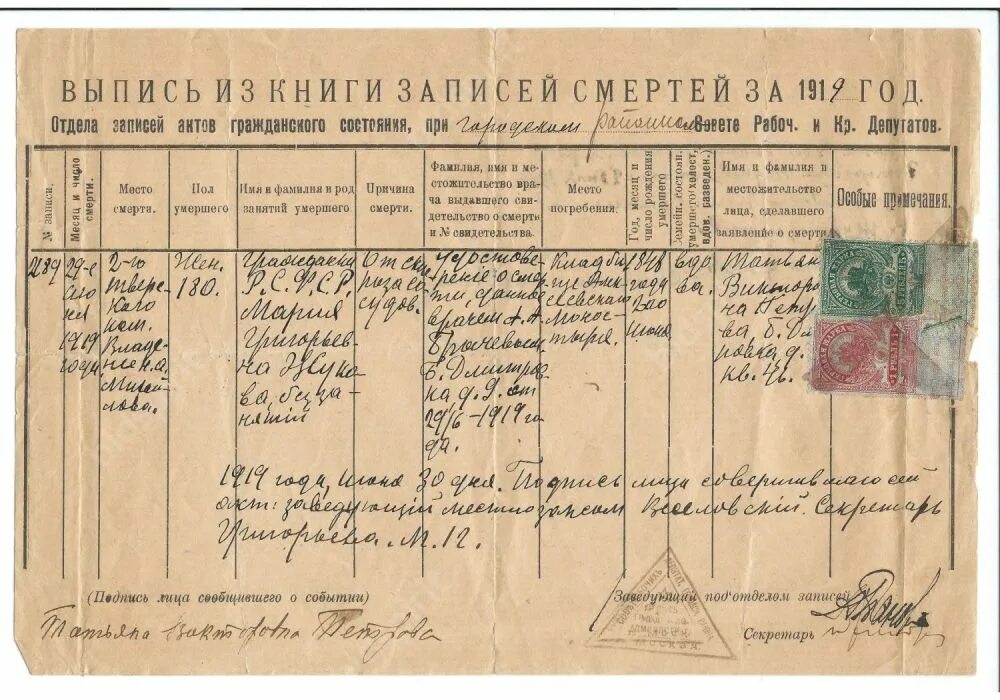 ВЫПИСЬ ИЗ КНИГИ ЗАПИСЕЙ СМЕРТЕЙ ЗА 1919 ГОД.
Отдела записей актов гражданского состояния, при городском районном Совете Рабоч. и Кр. Депутатов.
№ записи.
Месяц и число смерти.
Место
смерти.
Пол
умершего
Имя и фамилия и род
занятий умершего
Причина
смерти.
Фамилия, имя и ме-
стожительство вра-
ча выдавшего сви-
детельство о смерти
и № свидетельства.
Место
погребения.
Год, месяц и
число рождения
умершего
Семейн. состоян.
умершего холост,
вдов. разведен.)
Имя и фамилия и
местожительство
лица, сделавшего
заявление о смерти
Особые примечания.
29-е
июня
1919
года
2-го
Тверс-
кого
ком.
Владе-
ние
Жен.
Гражданка
Р.С.Ф.С.Р.
Мария
Григорьев-
на Жуко-
ва, без за-
нятий
От скле-
роза со-
судов.
Удостове-
рение о смер-
ти, данное
врачем А. А.
Б. Дмитров-
ка, д. 9. от
29/6 - 1919 го-
да.
Кладби-
ще
Моно-
стыря.
1848
года
июня
вдо
ва.
Татьяна
Викторов-
на Петро-
ва, Б. Дмит-
ровка, д.
кв. 46.
5 РУБЛЕЙ 5
1 РУБЛЬ 1
1919 года, Июня 30 дня. Подпись лица совершившаго сей
акт: заведующий местоз Веселовский. Секретарь
Григорьева. М. П.
(Подпись лица сообщившего о событии)
Татьяна Викторовна Петрова
МОСКВА
Заведующий под'отделом записей
Секретарь